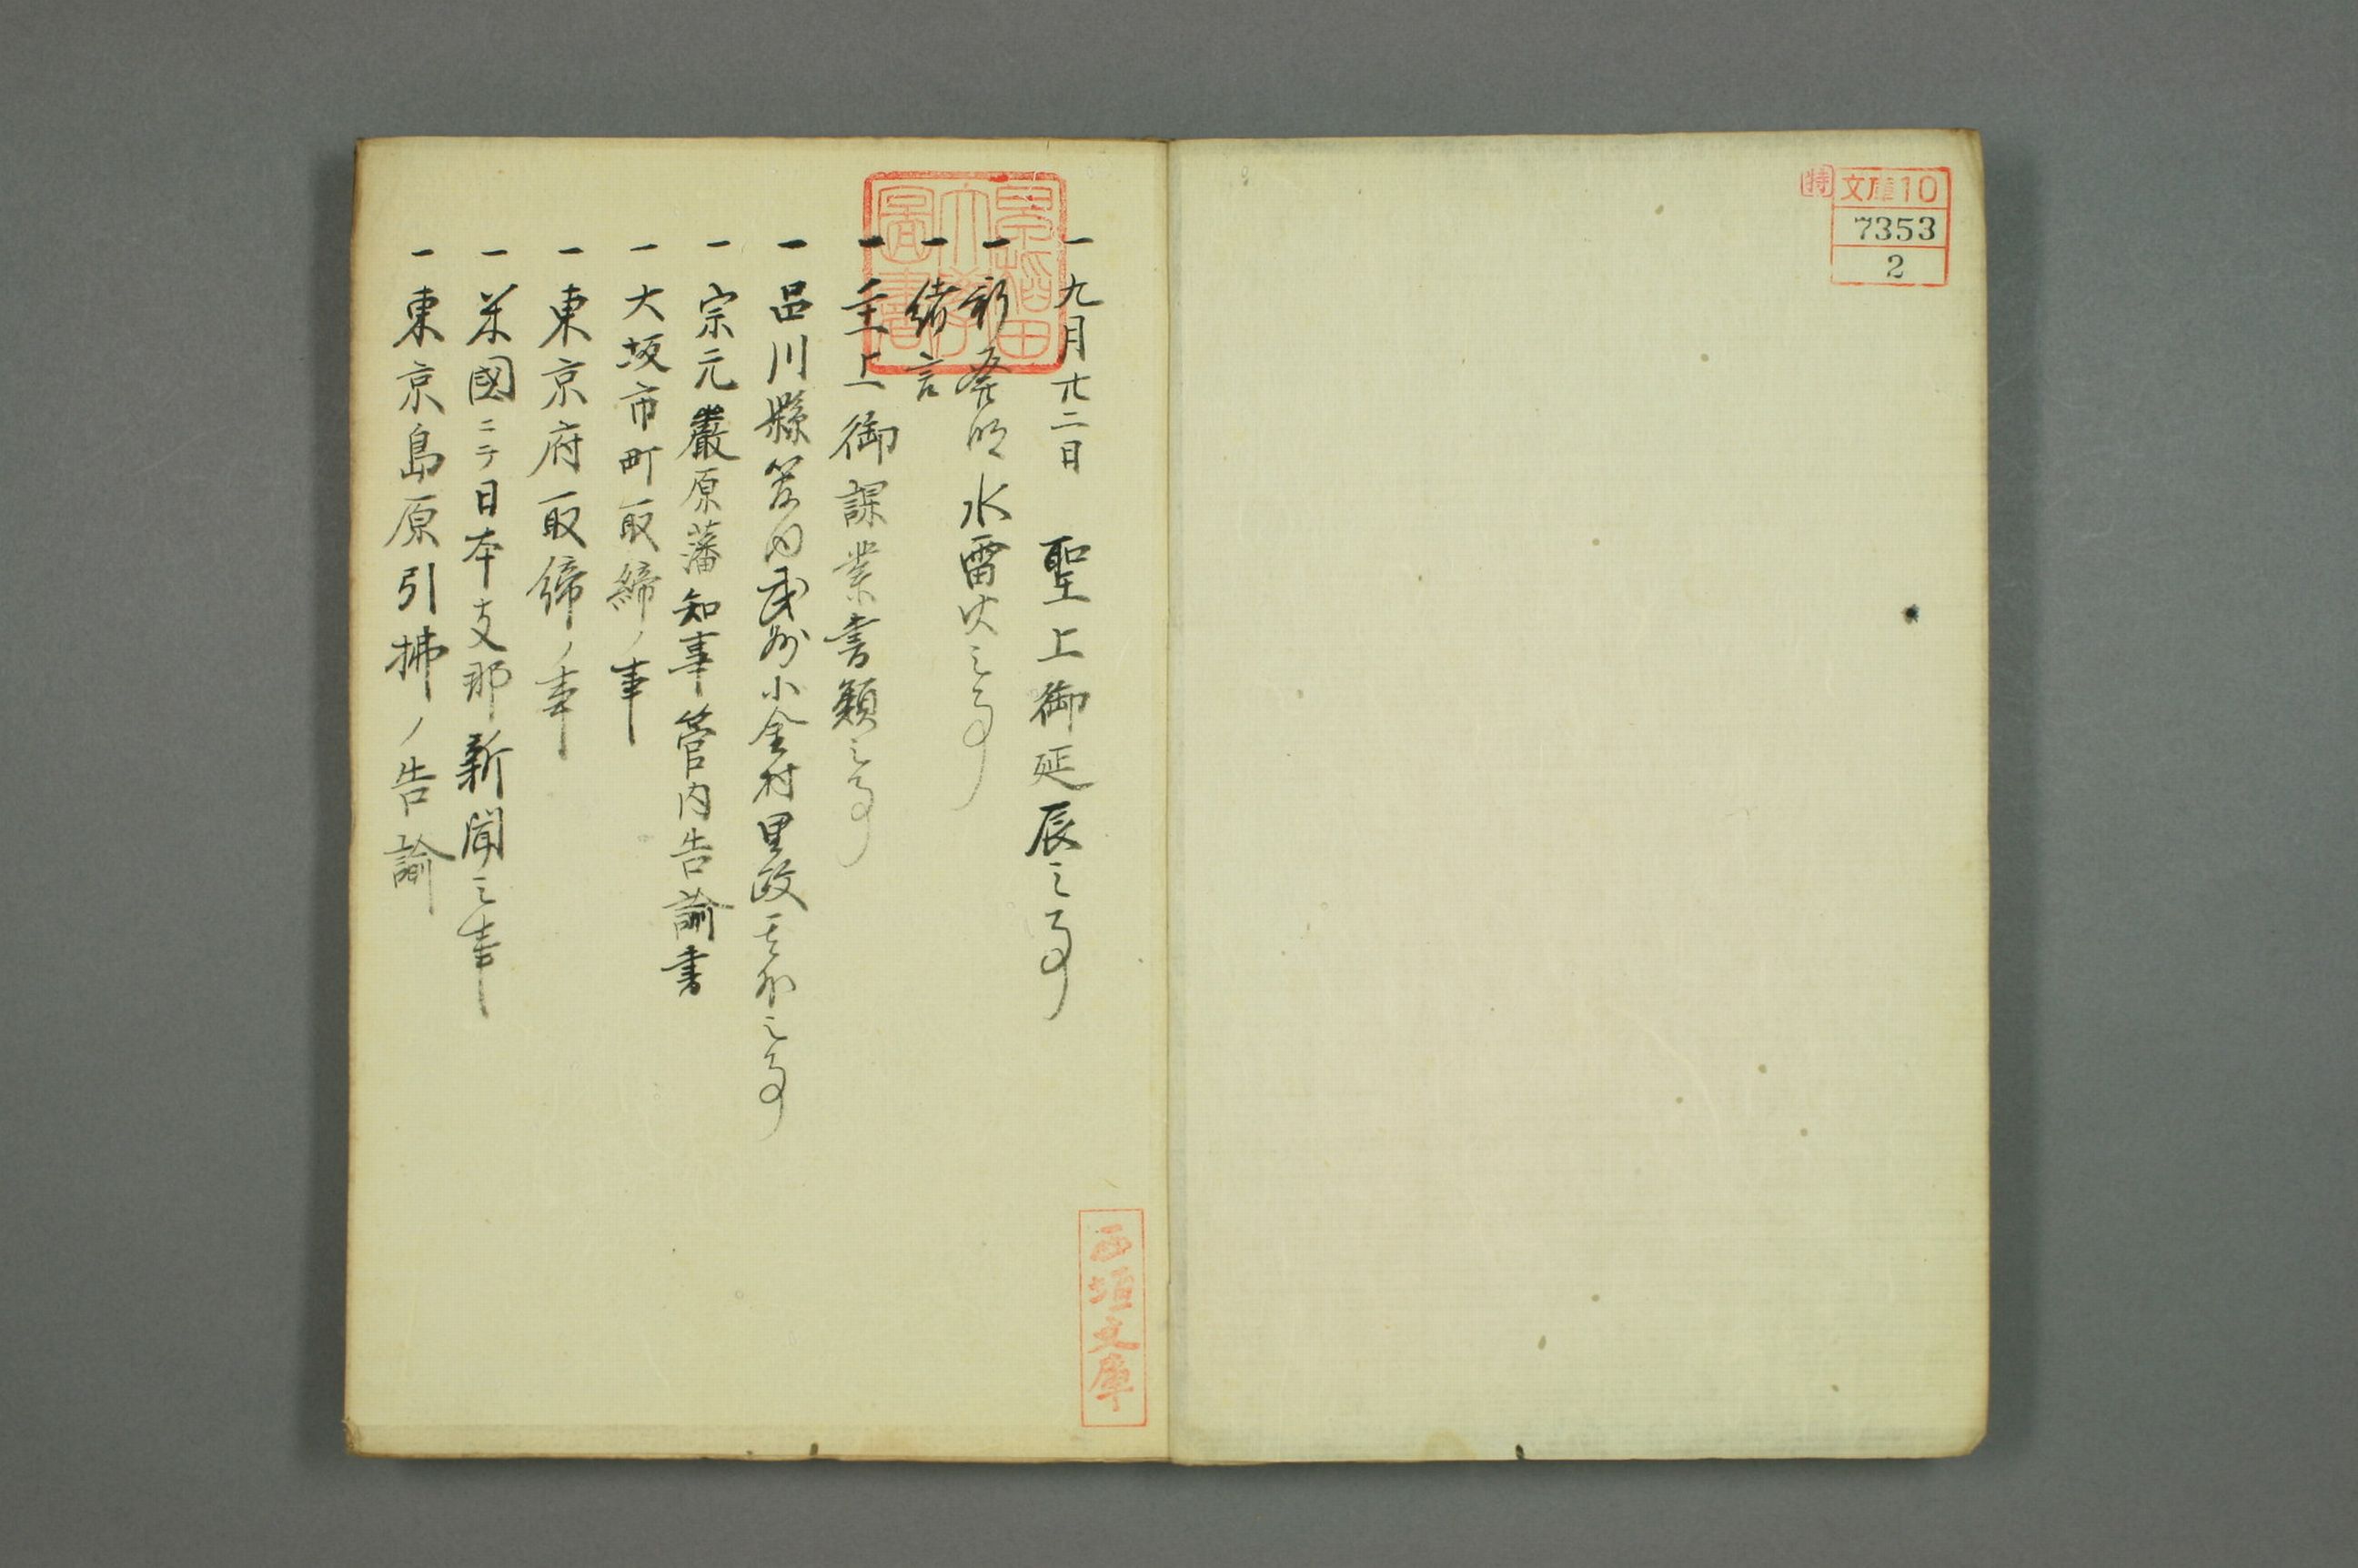 特
文庫10
7353
2
早稲田大學圖書
一九月廿二日 聖上御延辰之事
一新發明水雷火之事
一緒言
一主上御課業書類之事
一品川縣管内武州小金村里政其外之事
一宗元嚴原藩知事管内告諭書
一大坂市町取締ノ事
一東京府取締ノ事
一米國ニテ日本支那新聞之事
一東京島原引拂ノ告諭
西垣文庫